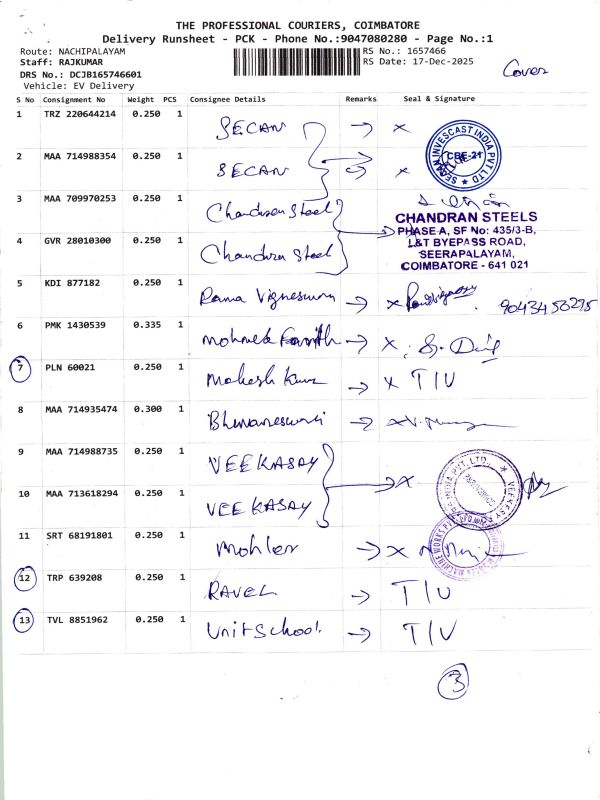 THE PROFESSIONAL COURIERS, COIMBATORE
Delivery Runsheet - PCK - Phone No.:9047080280 - Page No.:1
Route: NACHIPALAYAM
RS No.: 1657466
Staff: RAJKUMAR
RS Date: 17-Dec-2025
DRS No.: DCJB165746601
Cover
Vehicle: EV Delivery
S No Consignment No Weight PCS Consignee Details Remarks Seal & Signature
1 TRZ 220644214 0.250 1 SECAN → x
2 MAA 714988354 0.250 1 SECAN → x
INVESCAST INDIA PVT LTD
CBE-21
3 MAA 709970253 0.250 1 Chandran Steel
4 GVR 28010300 0.250 1 Chandran Steel
CHANDRAN STEELS
PHASE-A, SF No: 435/3-B,
L&T BYEPASS ROAD,
SEERAPALAYAM,
COIMBATORE - 641 021
5 KDI 877182 0.250 1 Rama Vigneswaran → x
6 PMK 1430539 0.335 1 → x
7 PLN 60021 0.250 1 Mahesh Kumar → x T/U
8 MAA 714935474 0.300 1 Bhuvaneswari → x
9 MAA 714988735 0.250 1 VEEKASAY
10 MAA 713618294 0.250 1 VEEKASAY → x
11 SRT 68191801 0.250 1 Mohler → x
12 TRP 639208 0.250 1 RAVEL → T/U
13 TVL 8851962 0.250 1 Unit School → T/U
3